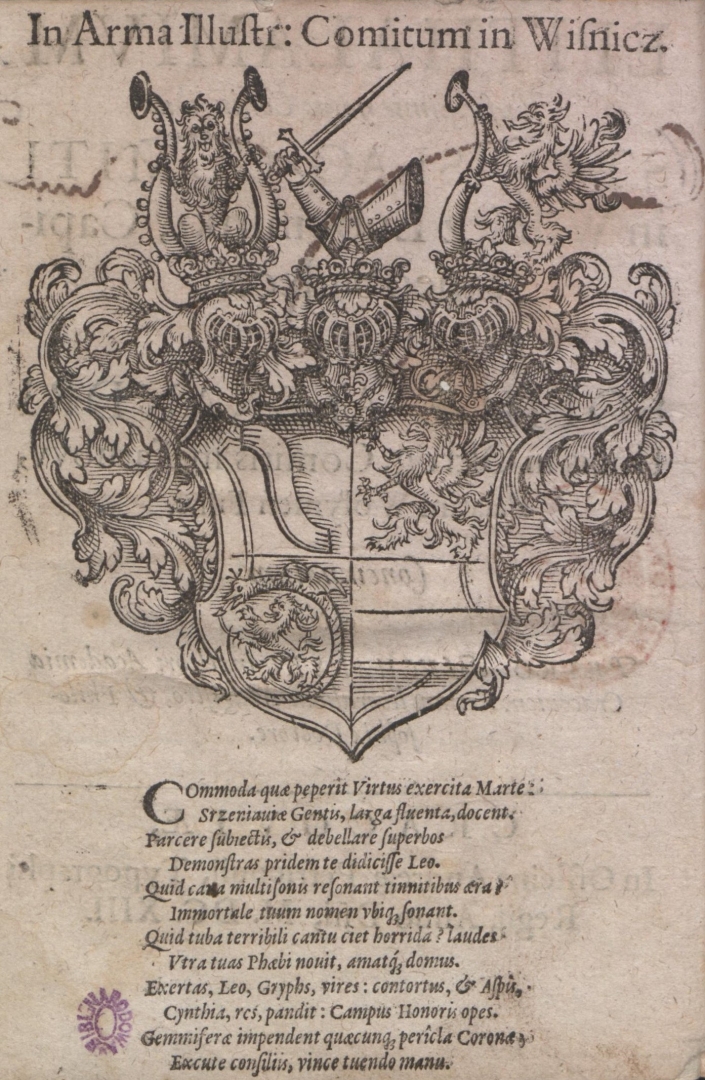 In Arma Illuſtr: Comitum in Wiſnicz.
COmmoda quæ peperit Virtus exercita Marte:
Srzeniaviæ Gentis, larga fluenta, docent.
Parcere ſubiectis, & debellare ſuperbos
Demonſtras pridem te didiciſſe Leo.
Quid cava multiſonis reſonant tinnitibus æra?
Immortale tuum nomen vbiq; ſonant.
Quid tuba terribili cantu ciet horrida? laudes
Vtra tuas Phœbi novit, amatq́; domus.
Exertas, Leo, Gryphs, vires: contortus, & Aſpis,
Cynthia, res, pandit: Campus Honoris opes.
Gemmiferæ impendent quæcunq; pericla Coronæ,
Excute conſiliis, vince tuendo manu.